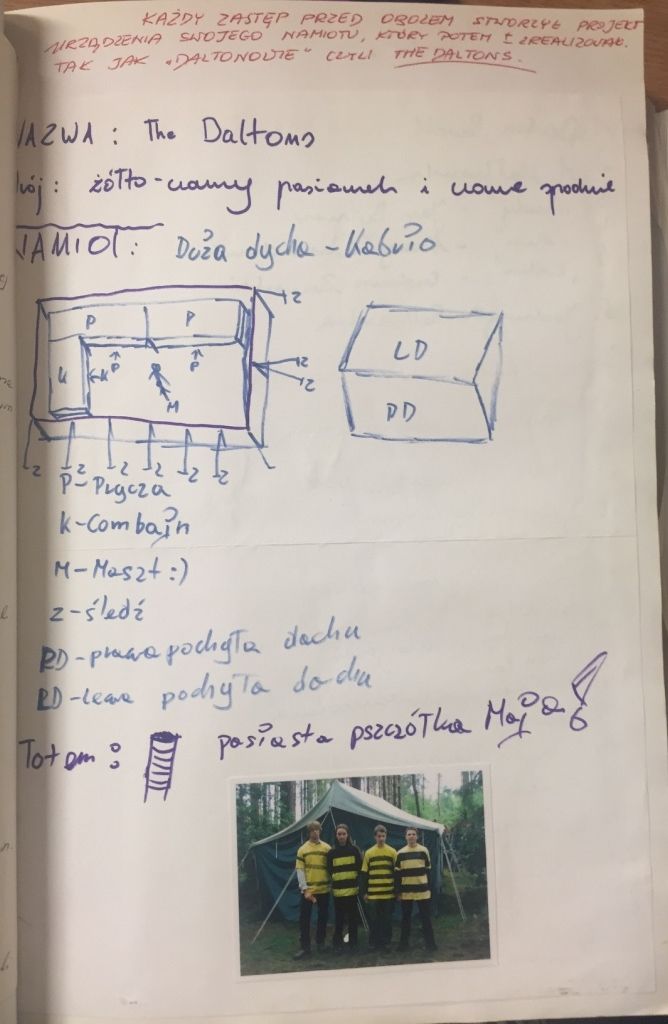 KAŻDY ZASTĘP PRZED OBOZEM STWORZYŁ PROJEKT
URZĄDZENIA SWOJEGO NAMIOTU, KTÓRY POTEM ZREALIZOWAŁ.
TAK JAK „DALTONOWIE" CZYLI THE DALTONS.
NAZWA : The Daltons
żółto-czarny pasiaczek i czarne spodnie
NAMIOT: Duża dycha - Kabrio
P P
K K P P
M
LD
PD
Z Z Z
Z Z Z Z Z Z
P - Prycza
K - Combajn
M - Maszt :)
Z - śledź
PD - prawa pochyła dachu
LD - lewa pochyła dachu
Totem : pasiasta pszczółka Maja !